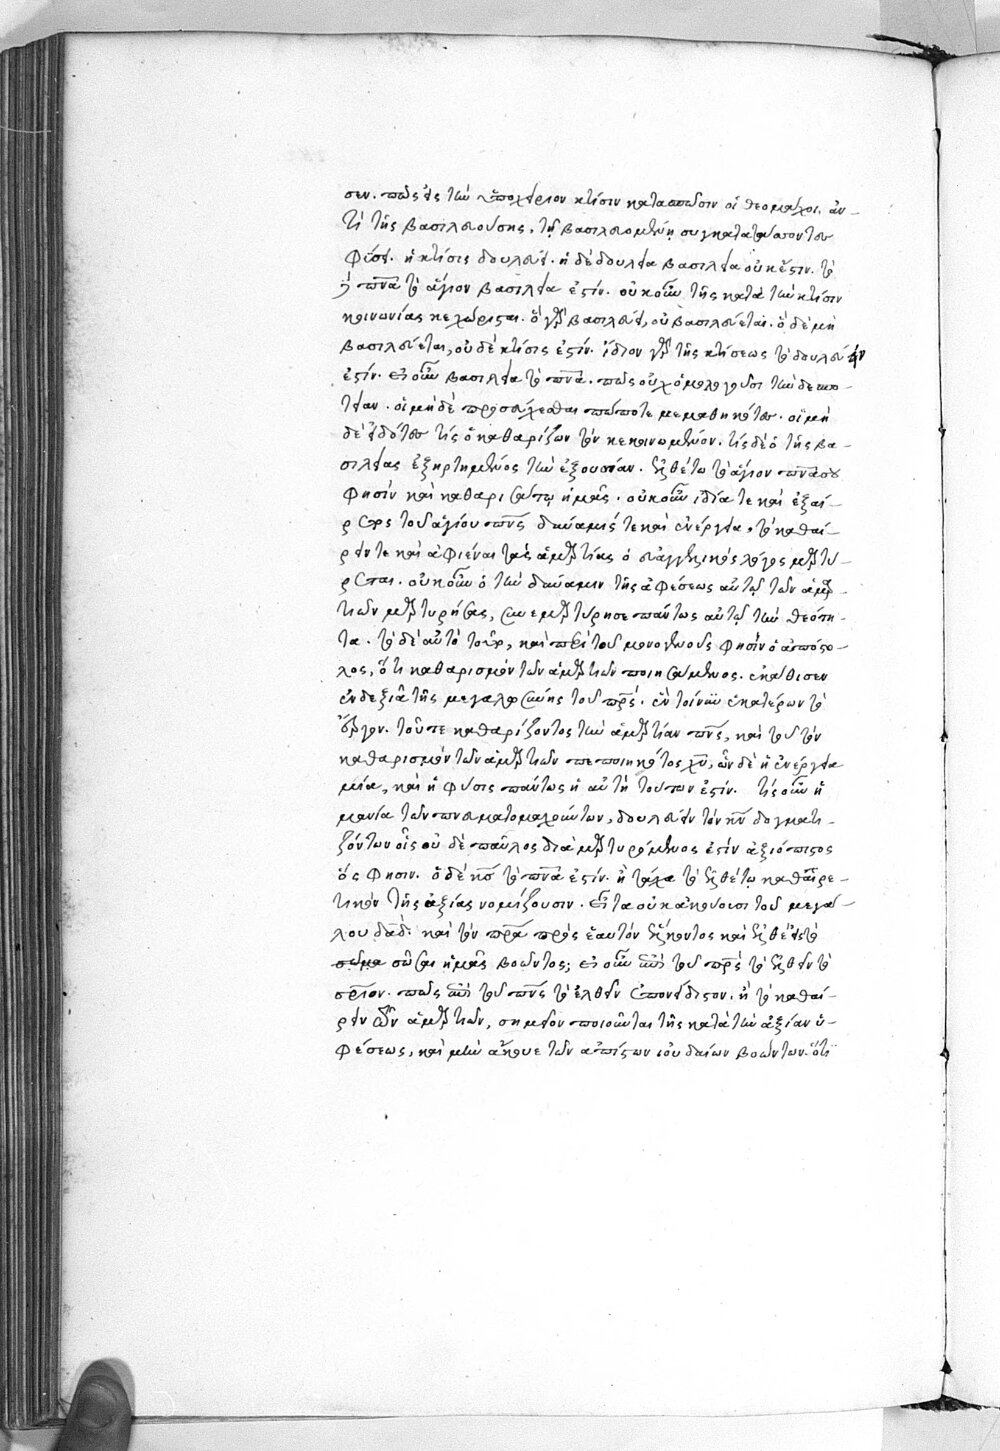 σεν. πῶς εἰς τὴν ὑποχείριον κτίσιν κατασπῶσιν οἱ θεομάχοι, ἀν-
τὶ τῆς βασιλευούσης, τῇ βασιλευομένῃ συγκατατάττοντες
φύσει. ἡ κτίσις δουλεύει. ἡ δὲ δουλεία βασιλεία οὐκ ἔστιν. τὸ
δὲ πνα τὸ ἅγιον βασιλεία ἐστίν. οὐκοῦν τῆς κατὰ τὴν κτίσιν
κοινωνίας κεχώρισται. ὃ γὰρ βασιλεύει, οὐ βασιλεύεται. ὃ δὲ μὴ
βασιλεύεται, οὐδὲ κτίσις ἐστίν. ἴδιον γὰρ τῆς κτίσεως τὸ δουλεύειν
ἐστίν. εἰ οὖν βασιλεία τὸ πνα. πῶς οὐχ ὁμολογοῦσι τὴν δεσπο-
τείαν. οἱ μηδὲ προσεύχεσθαι πώποτε μεμαθηκότες. οἱ μη
δὲ εἰδότες τίς ὁ καθαρίζων τὸν κεκοινωμένον. τίς δὲ ὁ τῆς βα-
σιλείας ἐξηρτημένος τὴν ἐξουσίαν. ἐλθέτω τὸ ἅγιον πνα σου
φησὶν καὶ καθαρισάτω ἡμᾶς. οὐκοῦν ἰδία τε καὶ ἐξαί-
ρετος τοῦ ἁγίου πνς δύναμίς τε καὶ ἐνέργεια, τὸ καθαί-
ρειν τε καὶ ἀφιέναι τὰς ἁμαρτίας ὁ εὐαγγελικὸς λόγος μαρτυ-
ρεῖται. οὐκοῦν ὁ τὴν δύναμιν τῆς ἀφέσεως αὐτῷ τῶν ἁμαρ-
τιῶν μαρτυρήσας, συνεμαρτύρησε πάντως αὐτῷ τὴν θεότη-
τα. τὸ δὲ αὐτὸ τοῦτο, καὶ περὶ τοῦ μονογενοῦς φησὶν ὁ ἀπόστο-
λος, ὅτι καθαρισμὸν τῶν ἁμαρτιῶν ποιησάμενος. ἐκάθισεν
ἐν δεξιᾷ τῆς μεγαλωσύνης τοῦ πρς. ἓν τοίνυν ἑκατέρων τὸ
ἔργον. τοῦτε καθαρίζοντος τὴν ἁμαρτίαν πνς, καὶ τοῦ τὸν
καθαρισμὸν τῶν ἁμαρτιῶν πεποιηκότος χυ, ὧν δὲ ἡ ἐνέργεια
μία, καὶ ἡ φύσις πάντως ἡ αὐτὴ τούτων ἐστίν. τίς οὖν ἡ
μανία τῶν πνευματομαχούντων, δουλεύειν τὸν κν δογματι-
ζόντων οἷς οὐδὲ παῦλος διαμαρτυρόμενος ἐστὶν ἀξιόπιστος
ὅς φησιν. ὁ δὲ κς τὸ πνα ἐστίν. ἢ τάχα τὸ ἐλθέτω καθαιρε-
τικὸν τῆς ἀξίας νομίζουσιν. εἶτα οὐκ ἀκούουσι τοῦ μεγά-
λου δαδ. καὶ τὸν πρα πρὸς ἑαυτὸν ἕλκοντος καὶ ἐλθὲ εἰς τὸ
σῶσαι ἡμᾶς βοῶντος; εἰ οὖν ἐπὶ τοῦ πρς τὸ ἐλθεῖν τὸ
σριον. πῶς ἐπὶ τοῦ πνς τὸ ἐλθεῖν ἐπονείδιστον. ἢ τὸ καθαί-
ρειν τῶν ἁμαρτιῶν, σημεῖον ποιοῦνται τῆς κατὰ τὴν ἀξίαν ὑ-
φέσεως, καὶ μὴν ἄκουε τῶν ἀπίστων ἰουδαίων βοώντων. ὅτι